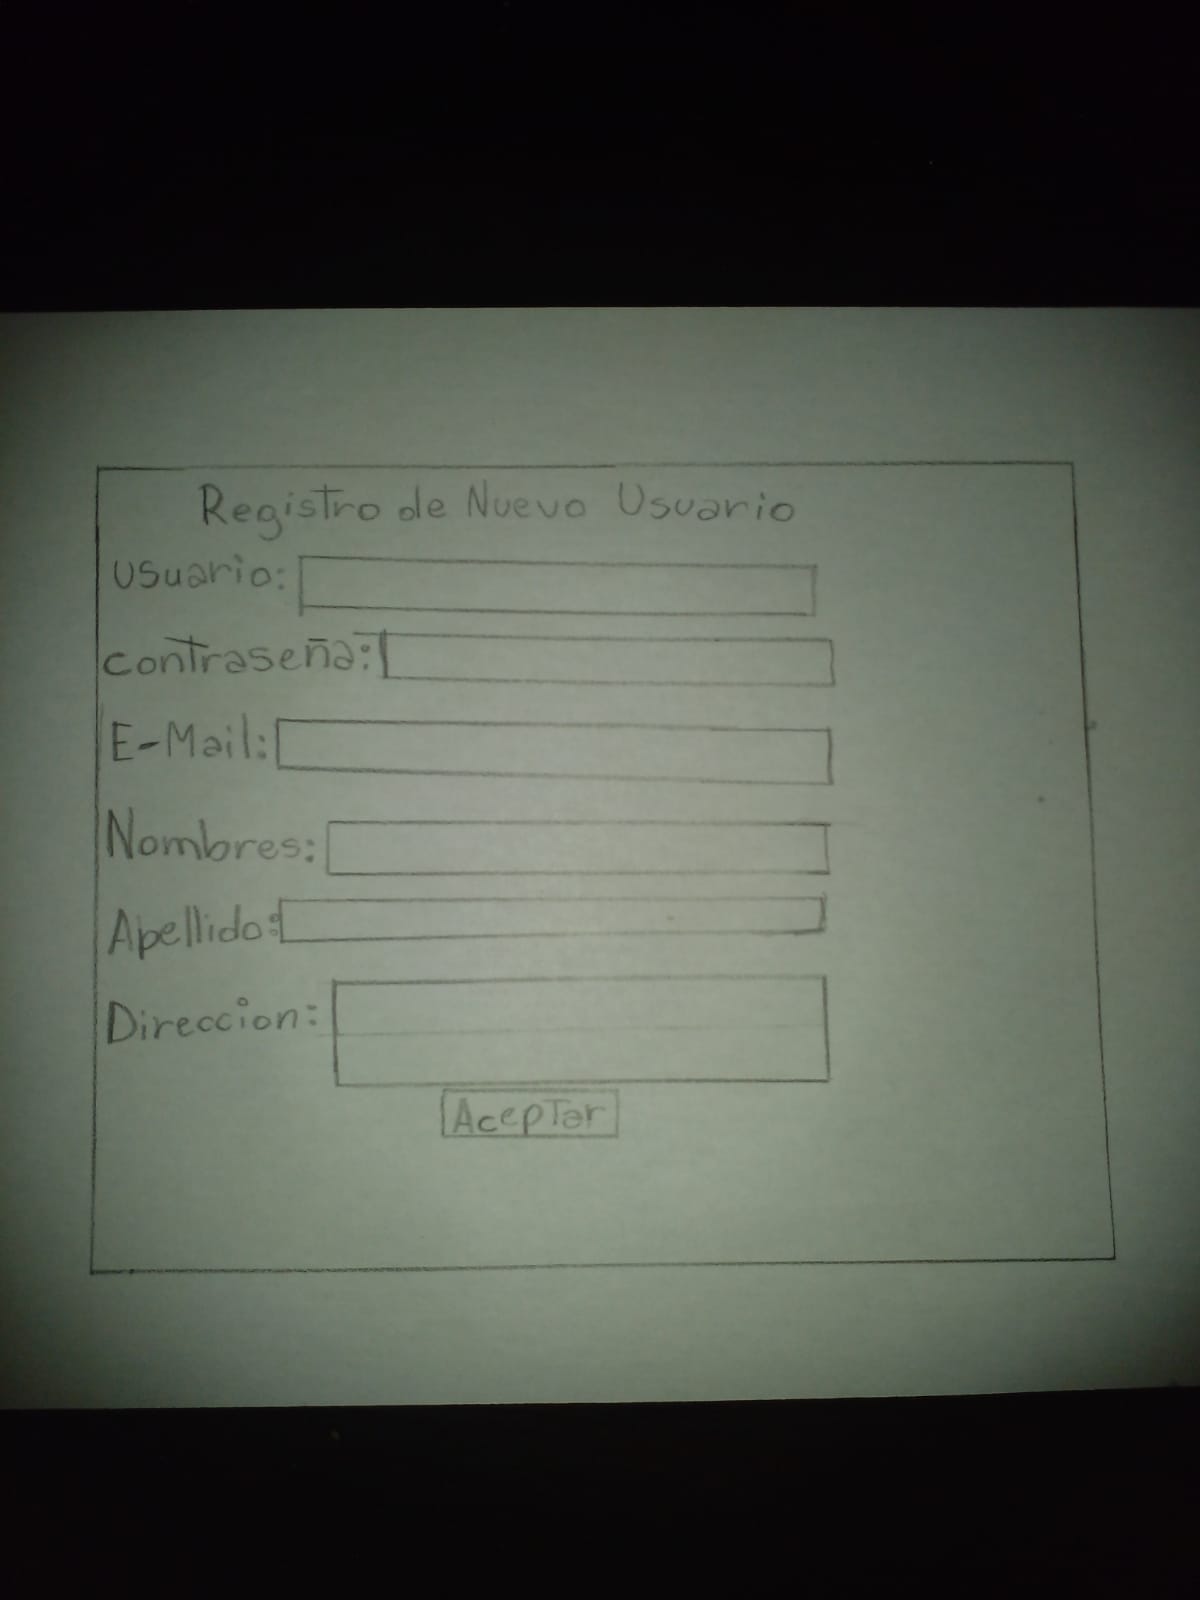 Registro de Nuevo Usuario
usuario:
contraseña:
E-Mail:
Nombres:
Apellido:
Direccion:
Aceptar